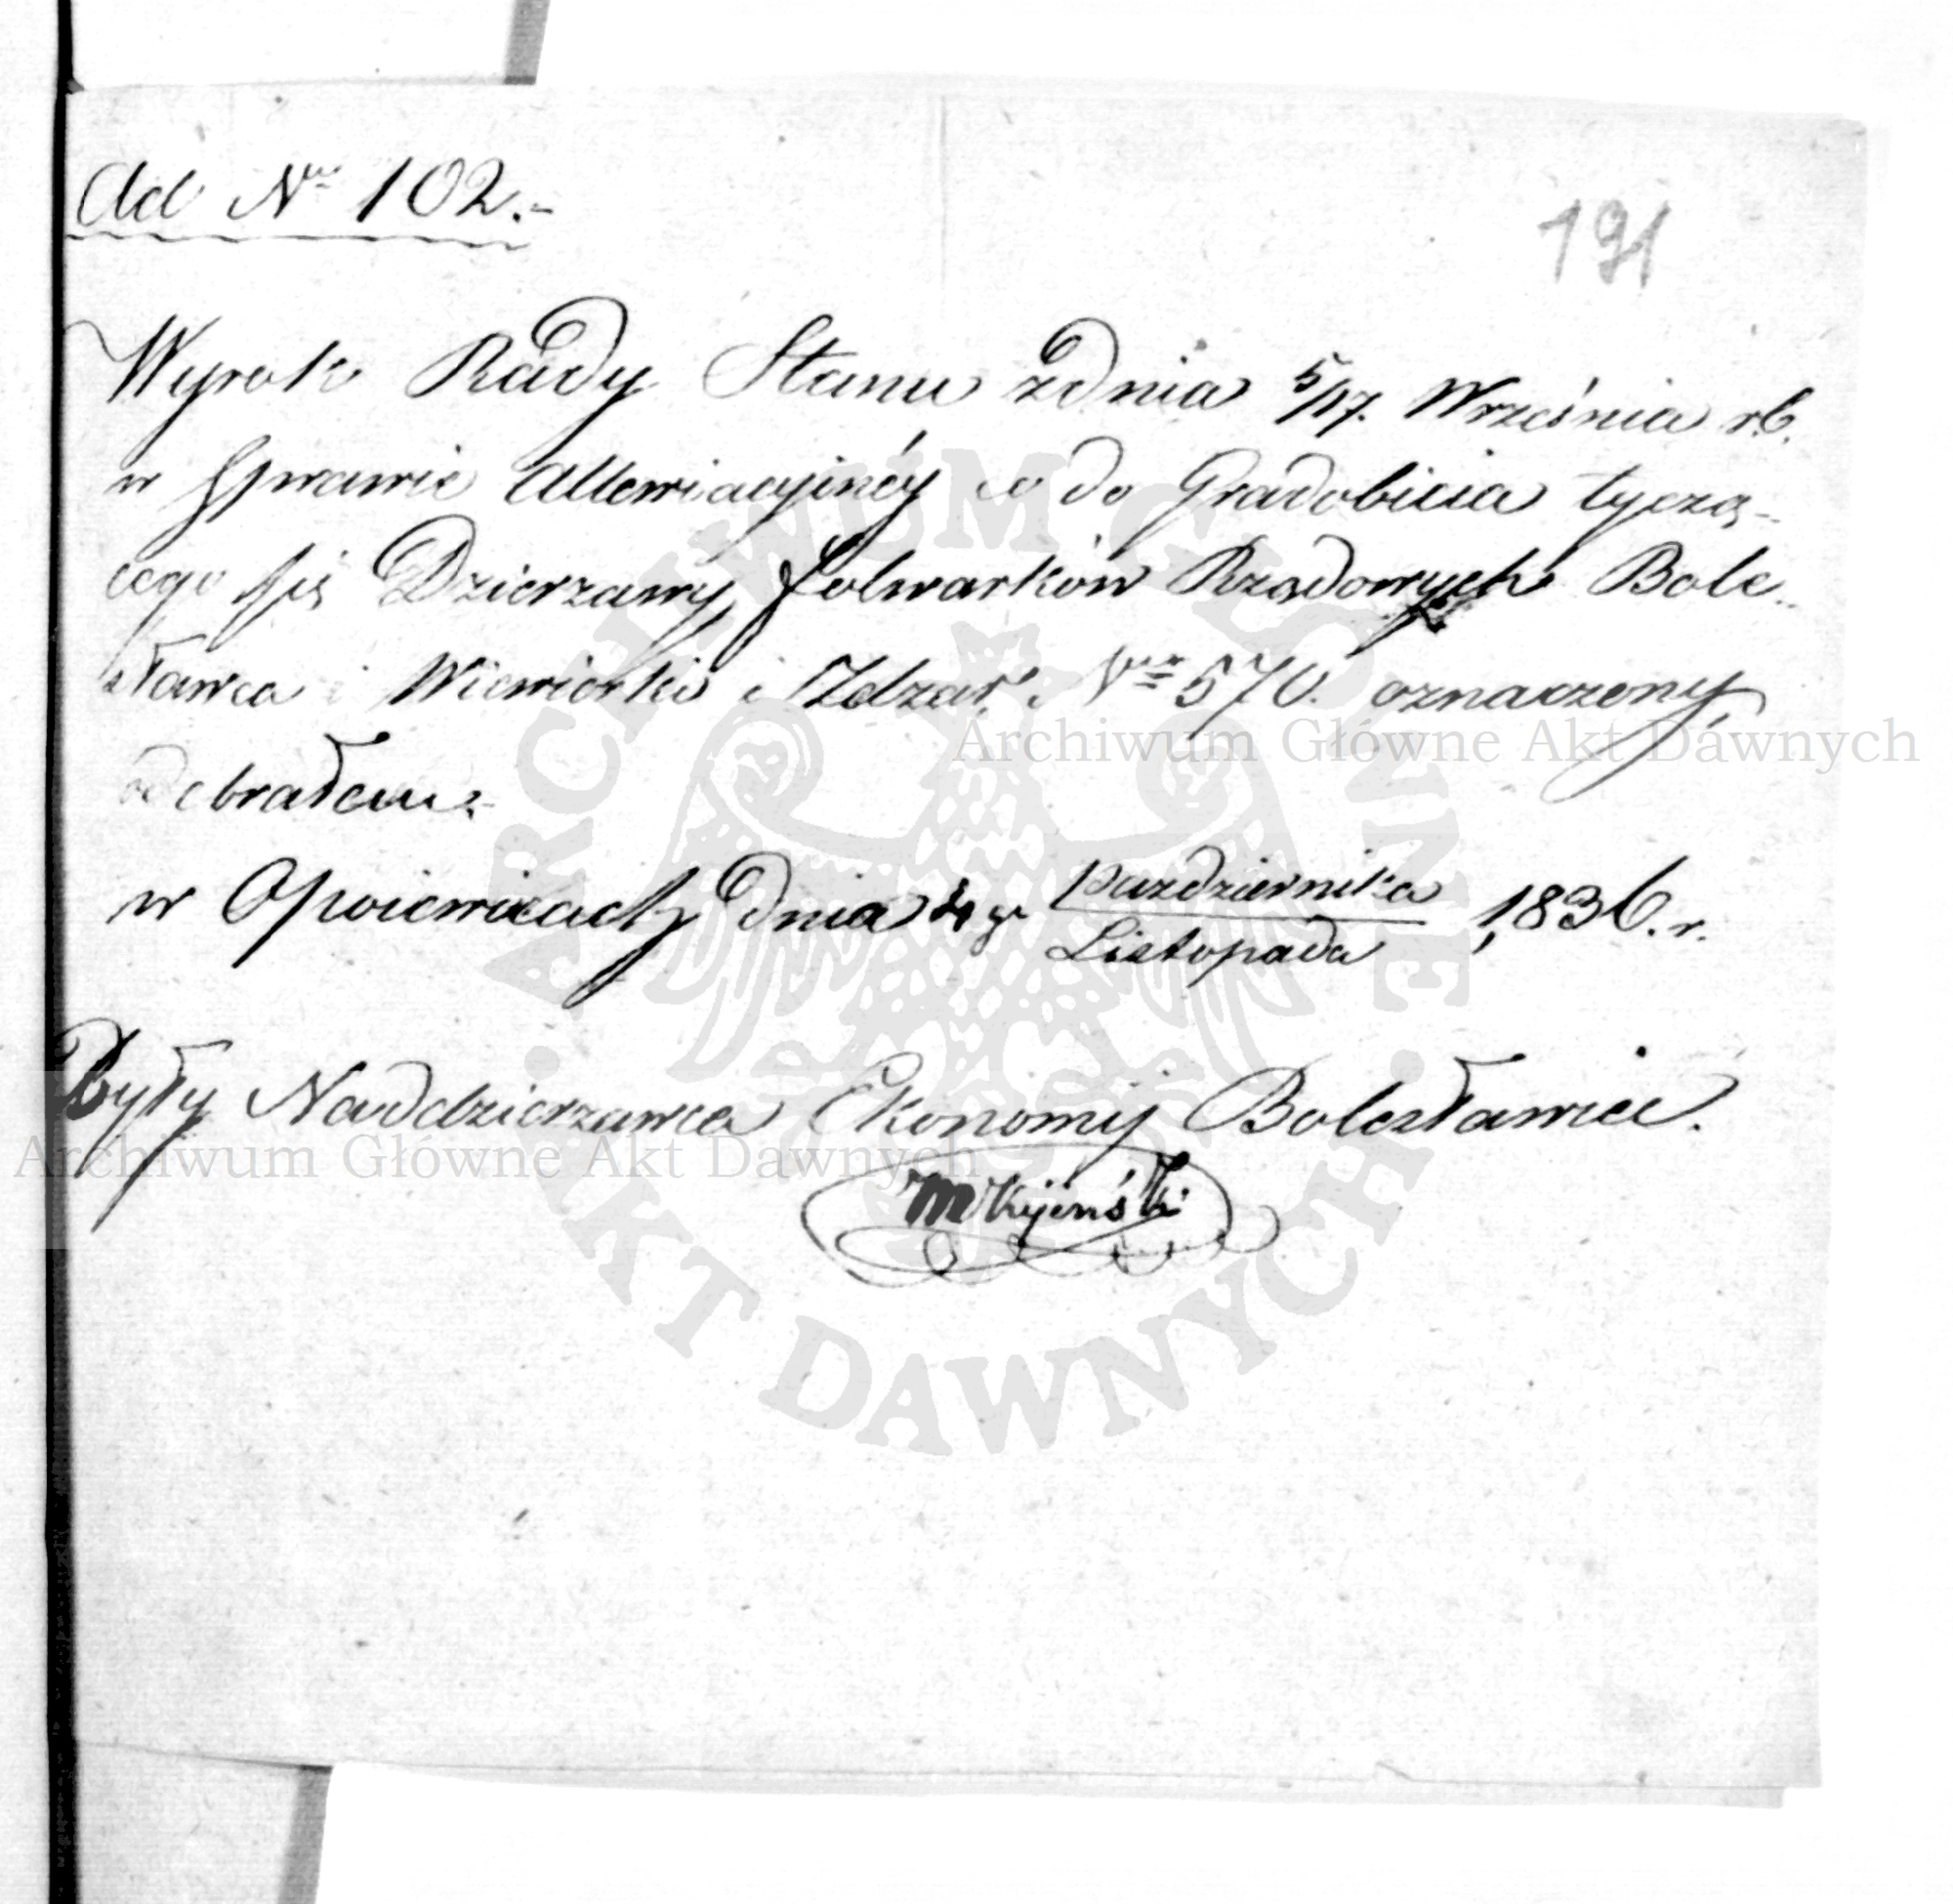 Ad N<sup>m</sup> 102.-
191
Wyrok Rady Stanu z dnia 5/17. Września r.b.
w Sprawie Allewiacyjnéy co do Gradobicia tyczą-
cego się Dzierzawy folwarków Rządowych Bole-
sławca i Wiewiorki i Zdzar. N<sup>m</sup> 570. oznaczony,
odebrałem.-
w Opoiewicach dnia go pazdziernika
Listopada 1836. r.
Były Naddzierzawca Ekonomij Bolesławiec.
M Kijeński
Archiwum Główne Akt Dawnych
Archiwum Główne Akt Dawnych
ARCHIWUM GŁÓWNE AKT DAWNYCH